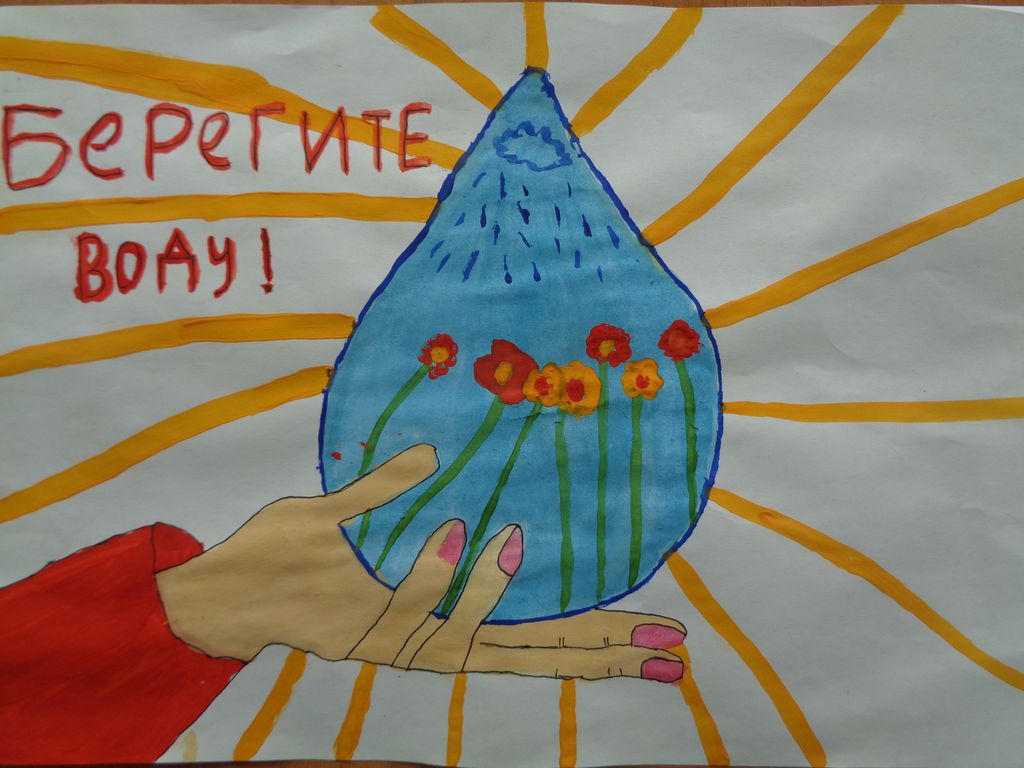 Берегите
воду!